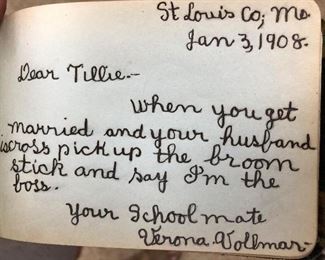 St Louis Co; Mo
Jan 3, 1908.
Dear Tillie.-
When you get
married and your husband
is cross pick up the broom
stick and say I'm the
boss.
Your Schoolmate
Verona. Vollmar-